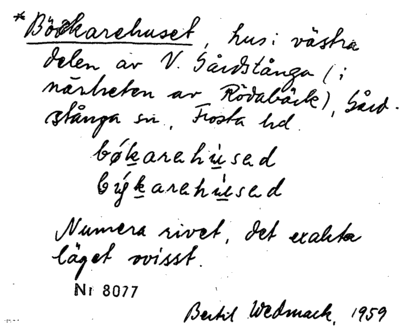 *Bökarehuset, hus i västra
delen av V. Gårdstånga (i
närheten av Rödabäck), Gård-
stånga sn, Frosta hd.
bǿkarehúsed
býkarehúsed
Numera rivet, det exakta
läget ovisst.
Nr 8077
Bertil Wedmark, 1959